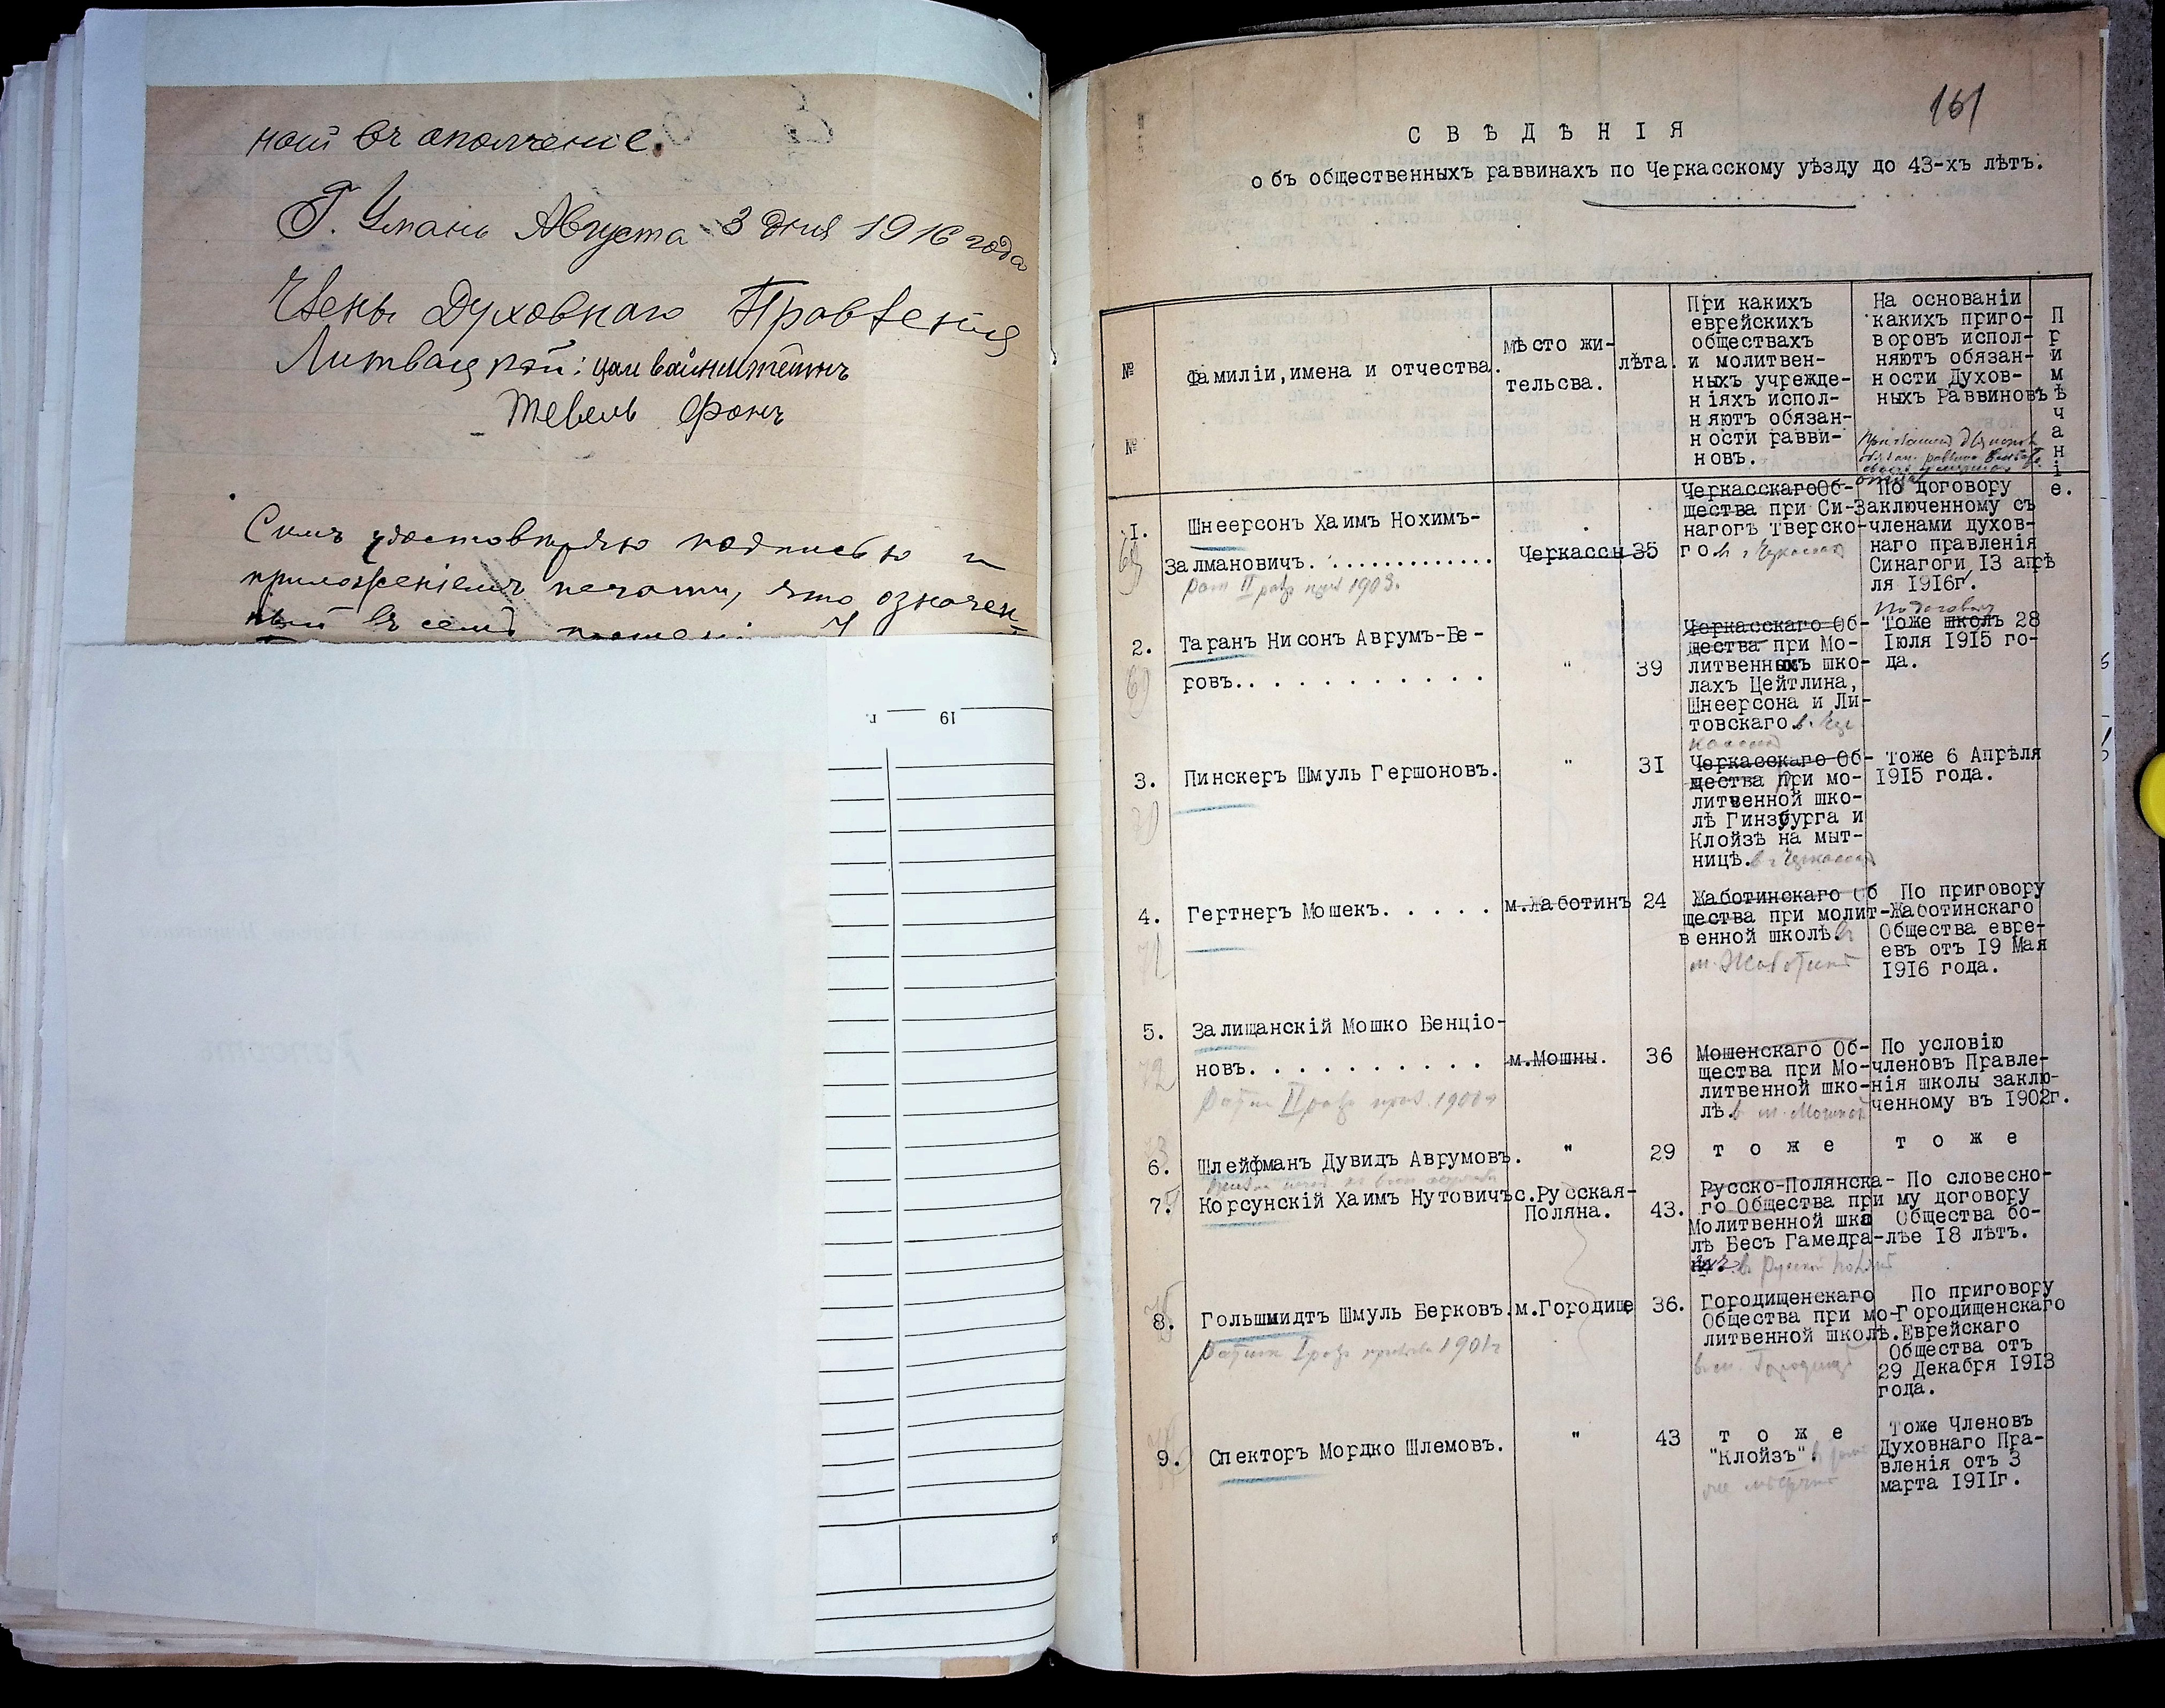 ной въ ополченіе.
Г. Умань Августа 3 дня 1916 года
Члены Духовнаго Правленія
Тевель Фонъ
Симъ удостовѣряю подписью и
приложеніемъ печати, что означен-
ный въ семъ
19 г.
161
СВѢДѢНІЯ
объ общественныхъ раввинахъ по Черкасскому уѣзду до 43-хъ лѣтъ.
№ №
Фамиліи, имена и отчества.
мѣсто жи-
тельсва.
лѣта.
При какихъ
еврейскихъ
обществахъ
и молитвен-
ныхъ учрежде-
ніяхъ испол-
няютъ обязан-
ности равви-
новъ.
На основаніи
какихъ приго-
воровъ испол-
няютъ обязан-
ности Духов-
ныхъ Раввиновъ
Примѣчаніе.
1.
Шнеерсонъ Хаимъ Нохимъ-
Залмановичъ. .............
II разр 1903.
Черкассы
35
Черкасскаго Об-
щества при Си-
нагогѣ Тверско-
го
По договору
Заключенному съ
членами духов-
наго правленія
Синагоги 13 апрѣ
ля 1916г.
2.
Таранъ Нисонъ Аврумъ-Бе-
ровъ.. . . . . . . . . . .
"
39
Черкасскаго Об-
щества при Мо-
литвенныхъ шко-
лахъ Цейтлина,
Шнеерсона и Ли-
товскаго
По договору
Тоже школъ 28
Іюля 1915 го-
да.
3.
Пинскеръ Шмуль Гершоновъ.
"
31
Черкасскаго Об-
щества при мо-
литвенной шко-
лѣ Гинзбурга и
Клойзѣ на мыт-
ницѣ. в г Черкассах
Тоже 6 Апрѣля
1915 года.
4.
Гертнеръ Мошекъ. . . . . .
м.Жаботинъ
24
Жаботинскаго Об
щества при молит-
венной школѣ. в
м. Жаботинѣ
По приговору
Жаботинскаго
Общества евре-
евъ отъ 19 Мая
1916 года.
5.
Залищанскій Мошко Бенціо-
новъ. . . . . . . . . . .
II разр
м.Мошны.
36
Мошенскаго Об-
щества при Мо-
литвенной шко-
лѣ. в м. Мошнах
По условію
членовъ Правле-
нія школы заклю-
ченному въ 1902г.
6.
Шлейфманъ Дувидъ Аврумовъ.
"
29
тоже
тоже
7.
Корсунскій Хаимъ Нутовичъ
с.Русская-
Поляна.
43.
Русско-Полянска-
го Общества при
Молитвенной шко
лѣ Бесъ Гамедра-
в Русской Полянѣ
По словесно-
му договору
Общества бо-
лѣе 18 лѣтъ.
8.
Гольшмидтъ Шмуль Берковъ.
I разр 1901г
м.Городище
36.
Городищенскаго
Общества при мо-
литвенной школѣ.
в м. Городище
По приговору
Городищенскаго
Еврейскаго
Общества отъ
29 Декабря 1913
года.
9.
Спекторъ Мордко Шлемовъ.
"
43
тоже
"Клойзъ".
Тоже Членовъ
Духовнаго Пра-
вленія отъ 3
марта 1911г.